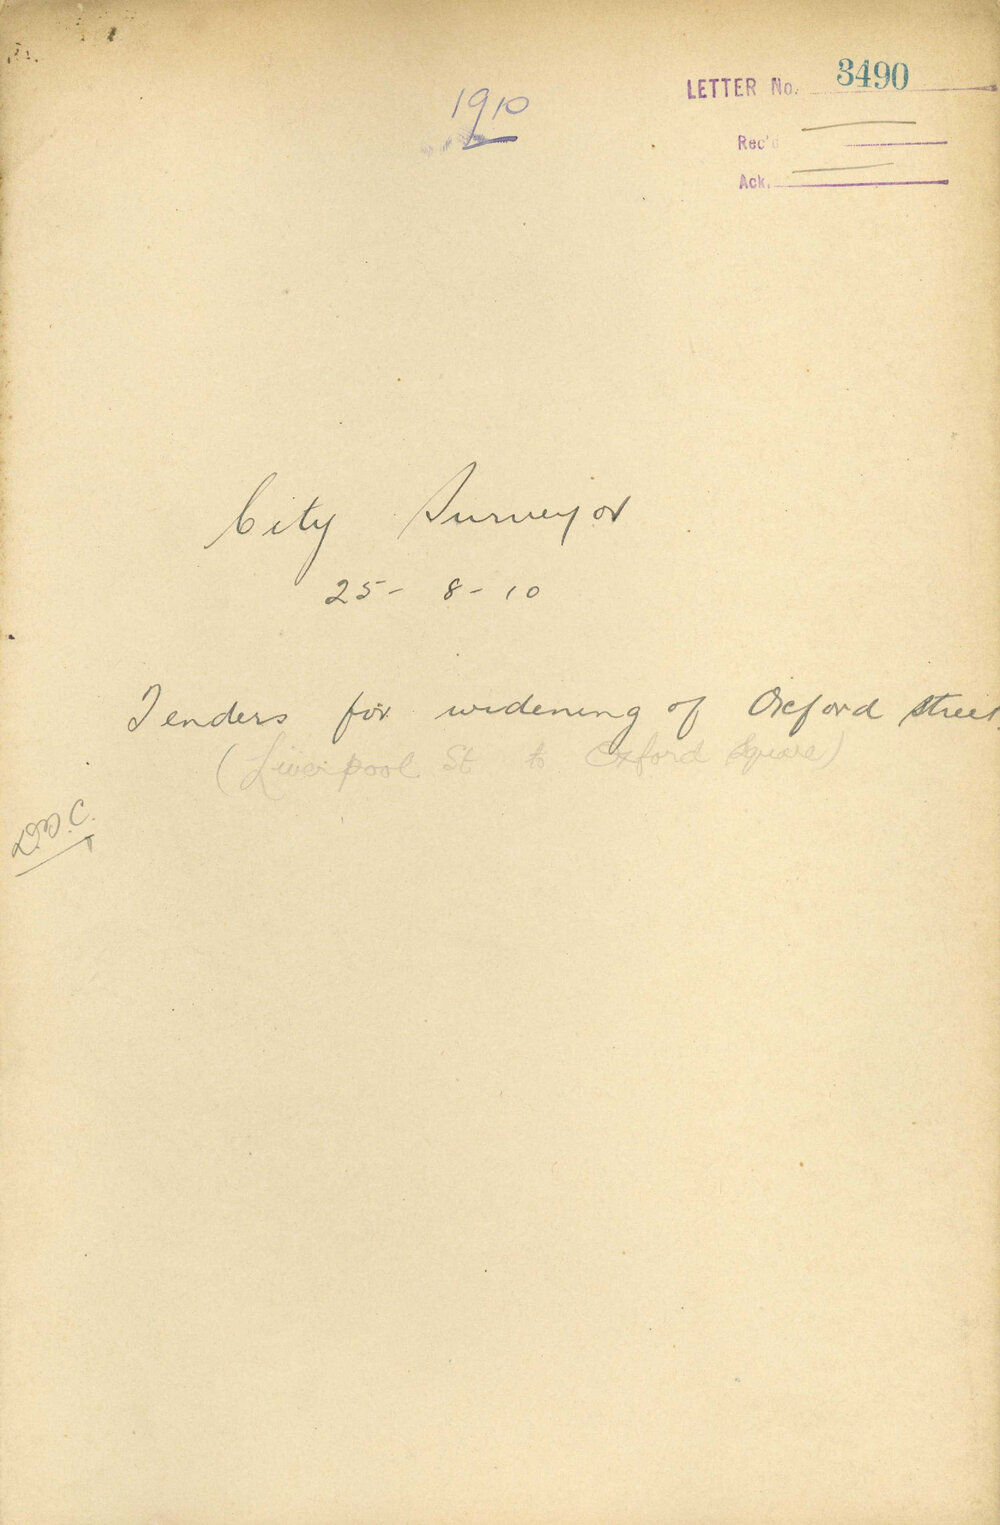 1910
LETTER No. 3490
Rec'd
Ack.
City Surveyor
25-8-10
Tenders for widening of Oxford Street
(Liverpool St to Oxford Square)